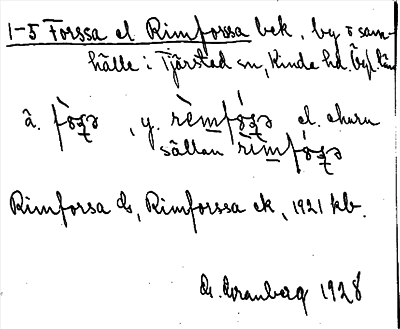 1-5 Forssa el Rimforssa bek, by o sam-
hälle i Tjärstad sn, Kinda hd. Ögl. län
å. , y. el. ehuru
sällan
Rimforsa ds, Rimforssa ek, 1921 kb.
G. Granberg 1928